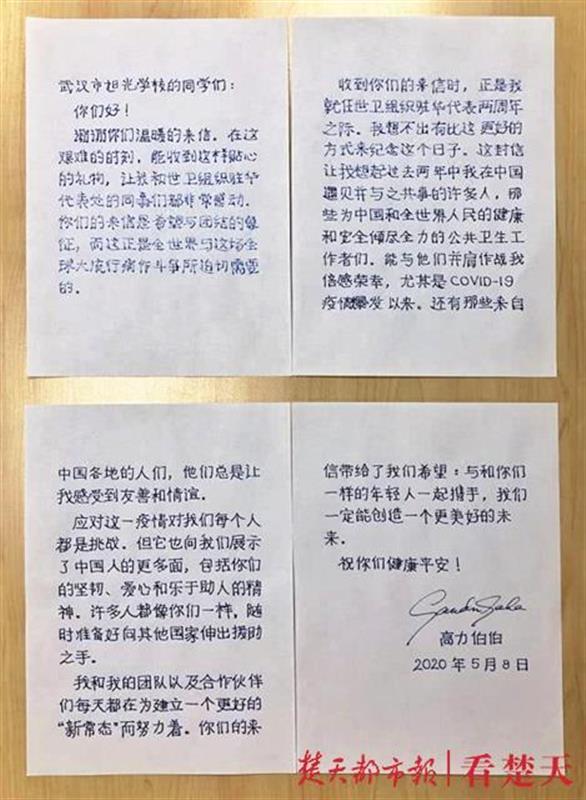 武汉市旭光学校的同学们：
你们好！
谢谢你们温暖的来信。在这
艰难的时刻，能收到这样贴心
的礼物，让我和世卫组织驻华
代表处的同事们都非常感动。
你们的来信是希望与团结的象
征，而这正是全世界与这场全
球大流行病作斗争所迫切需要
的。
收到你们的来信时，正是我
就任世卫组织驻华代表两周年
之际。我想不出有比这更好的
方式来纪念这个日子。这封信
让我想起过去两年中我在中国
遇见并与之共事的许多人，那
些为中国和全世界人民的健康
和安全倾尽全力的公共卫生工
作者们。能与他们并肩作战我
倍感荣幸，尤其是COVID-19
疫情爆发以来。还有那些来自
中国各地的人们，他们总是让
我感受到友善和情谊。
应对这一疫情对我们每个人
都是挑战。但它也向我们展示
了中国人的更多面，包括你们
的坚韧、爱心和乐于助人的精
神。许多人都像你们一样，随
时准备好向其他国家伸出援助
之手。
我和我的团队以及合作伙伴
们每天都在为建立一个更好的
“新常态”而努力着。你们的来
信带给了我们希望：与和你们
一样的年轻人一起携手，我们
一定能创造一个更美好的未
来。
祝你们健康平安！
高力伯伯
2020年5月8日
楚天都市报|看楚天